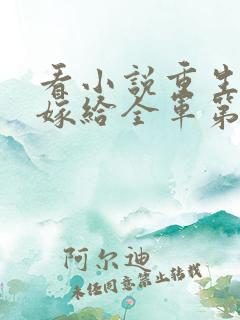 看小说重生
嫁给全军第
阿尔迪
未经同意禁止转载